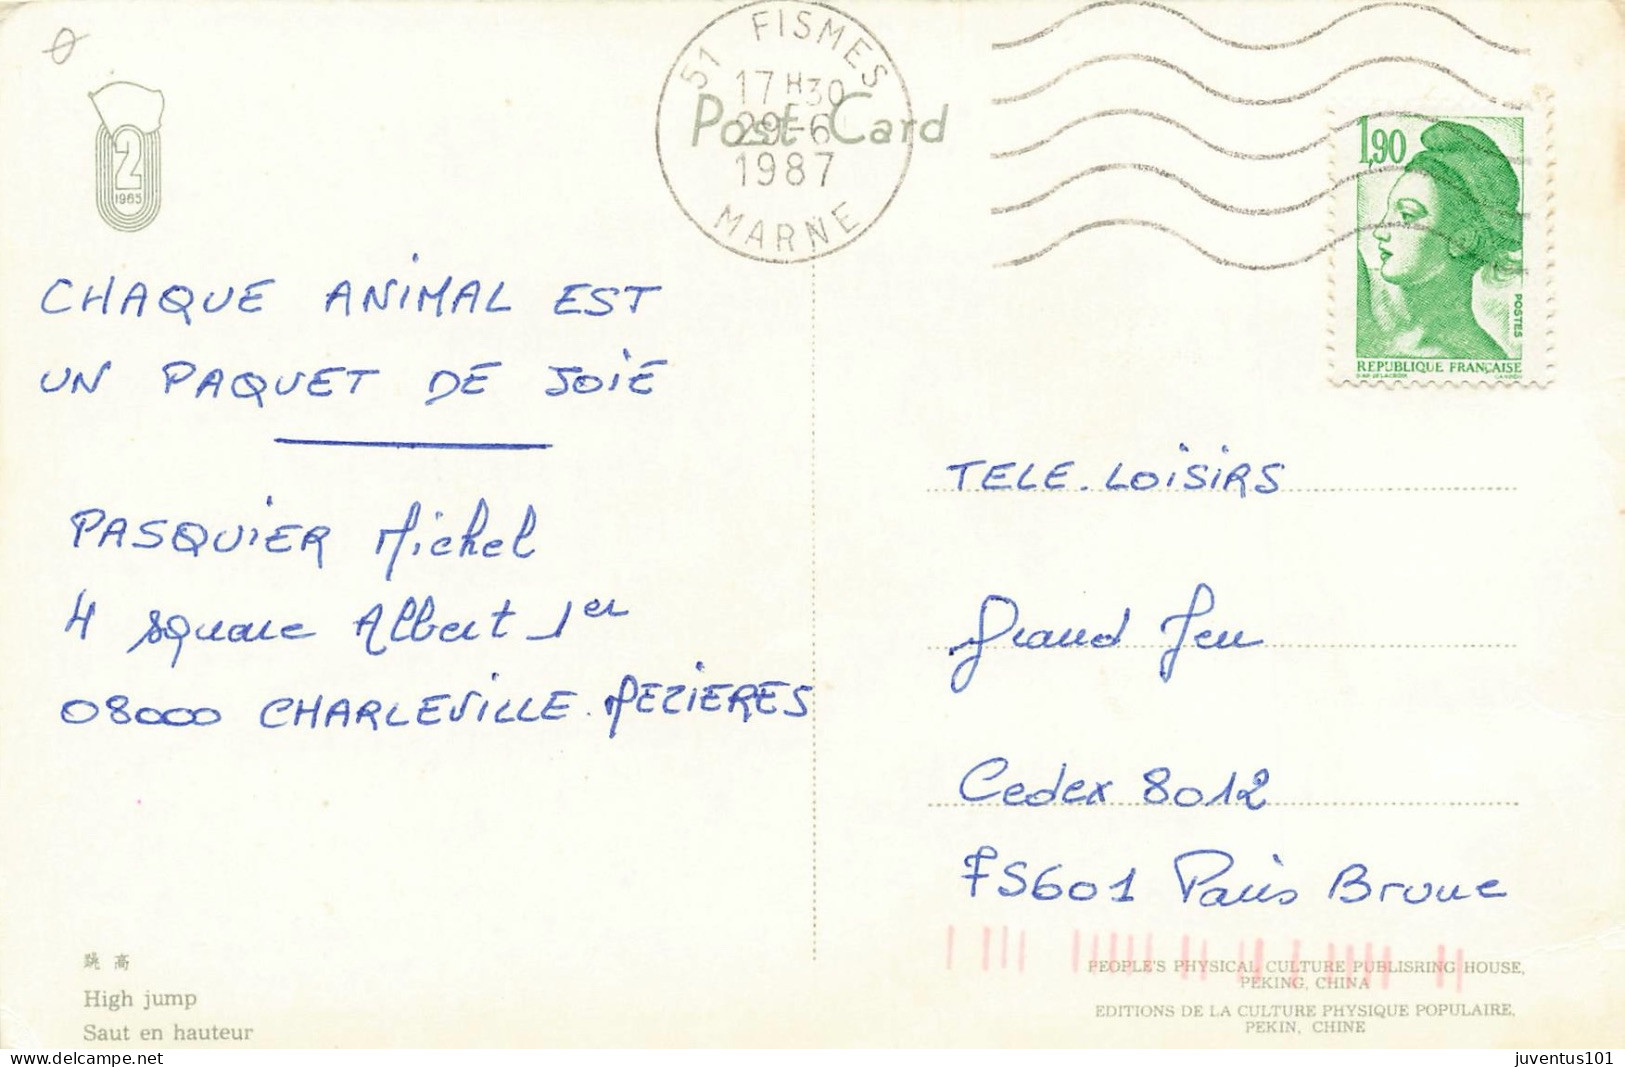 51 FISMES
17 H 30
29-6
1987
MARNE
Post Card
2
1965
1,90
POSTES
REPUBLIQUE FRANÇAISE
CHAQUE ANIMAL EST
UN PAQUET DE JOIE
PASQUIER Michel
4 square Albert 1er
08000 CHARLEVILLE-MEZIERES
TELE-LOISIRS
Grand Jeu
Cedex 8012
75601 Paris Brune
跳 高
High jump
Saut en hauteur
PEOPLE'S PHYSICAL CULTURE PUBLISRING HOUSE,
PEKING, CHINA
EDITIONS DE LA CULTURE PHYSIQUE POPULAIRE,
PEKIN, CHINE
juventus101